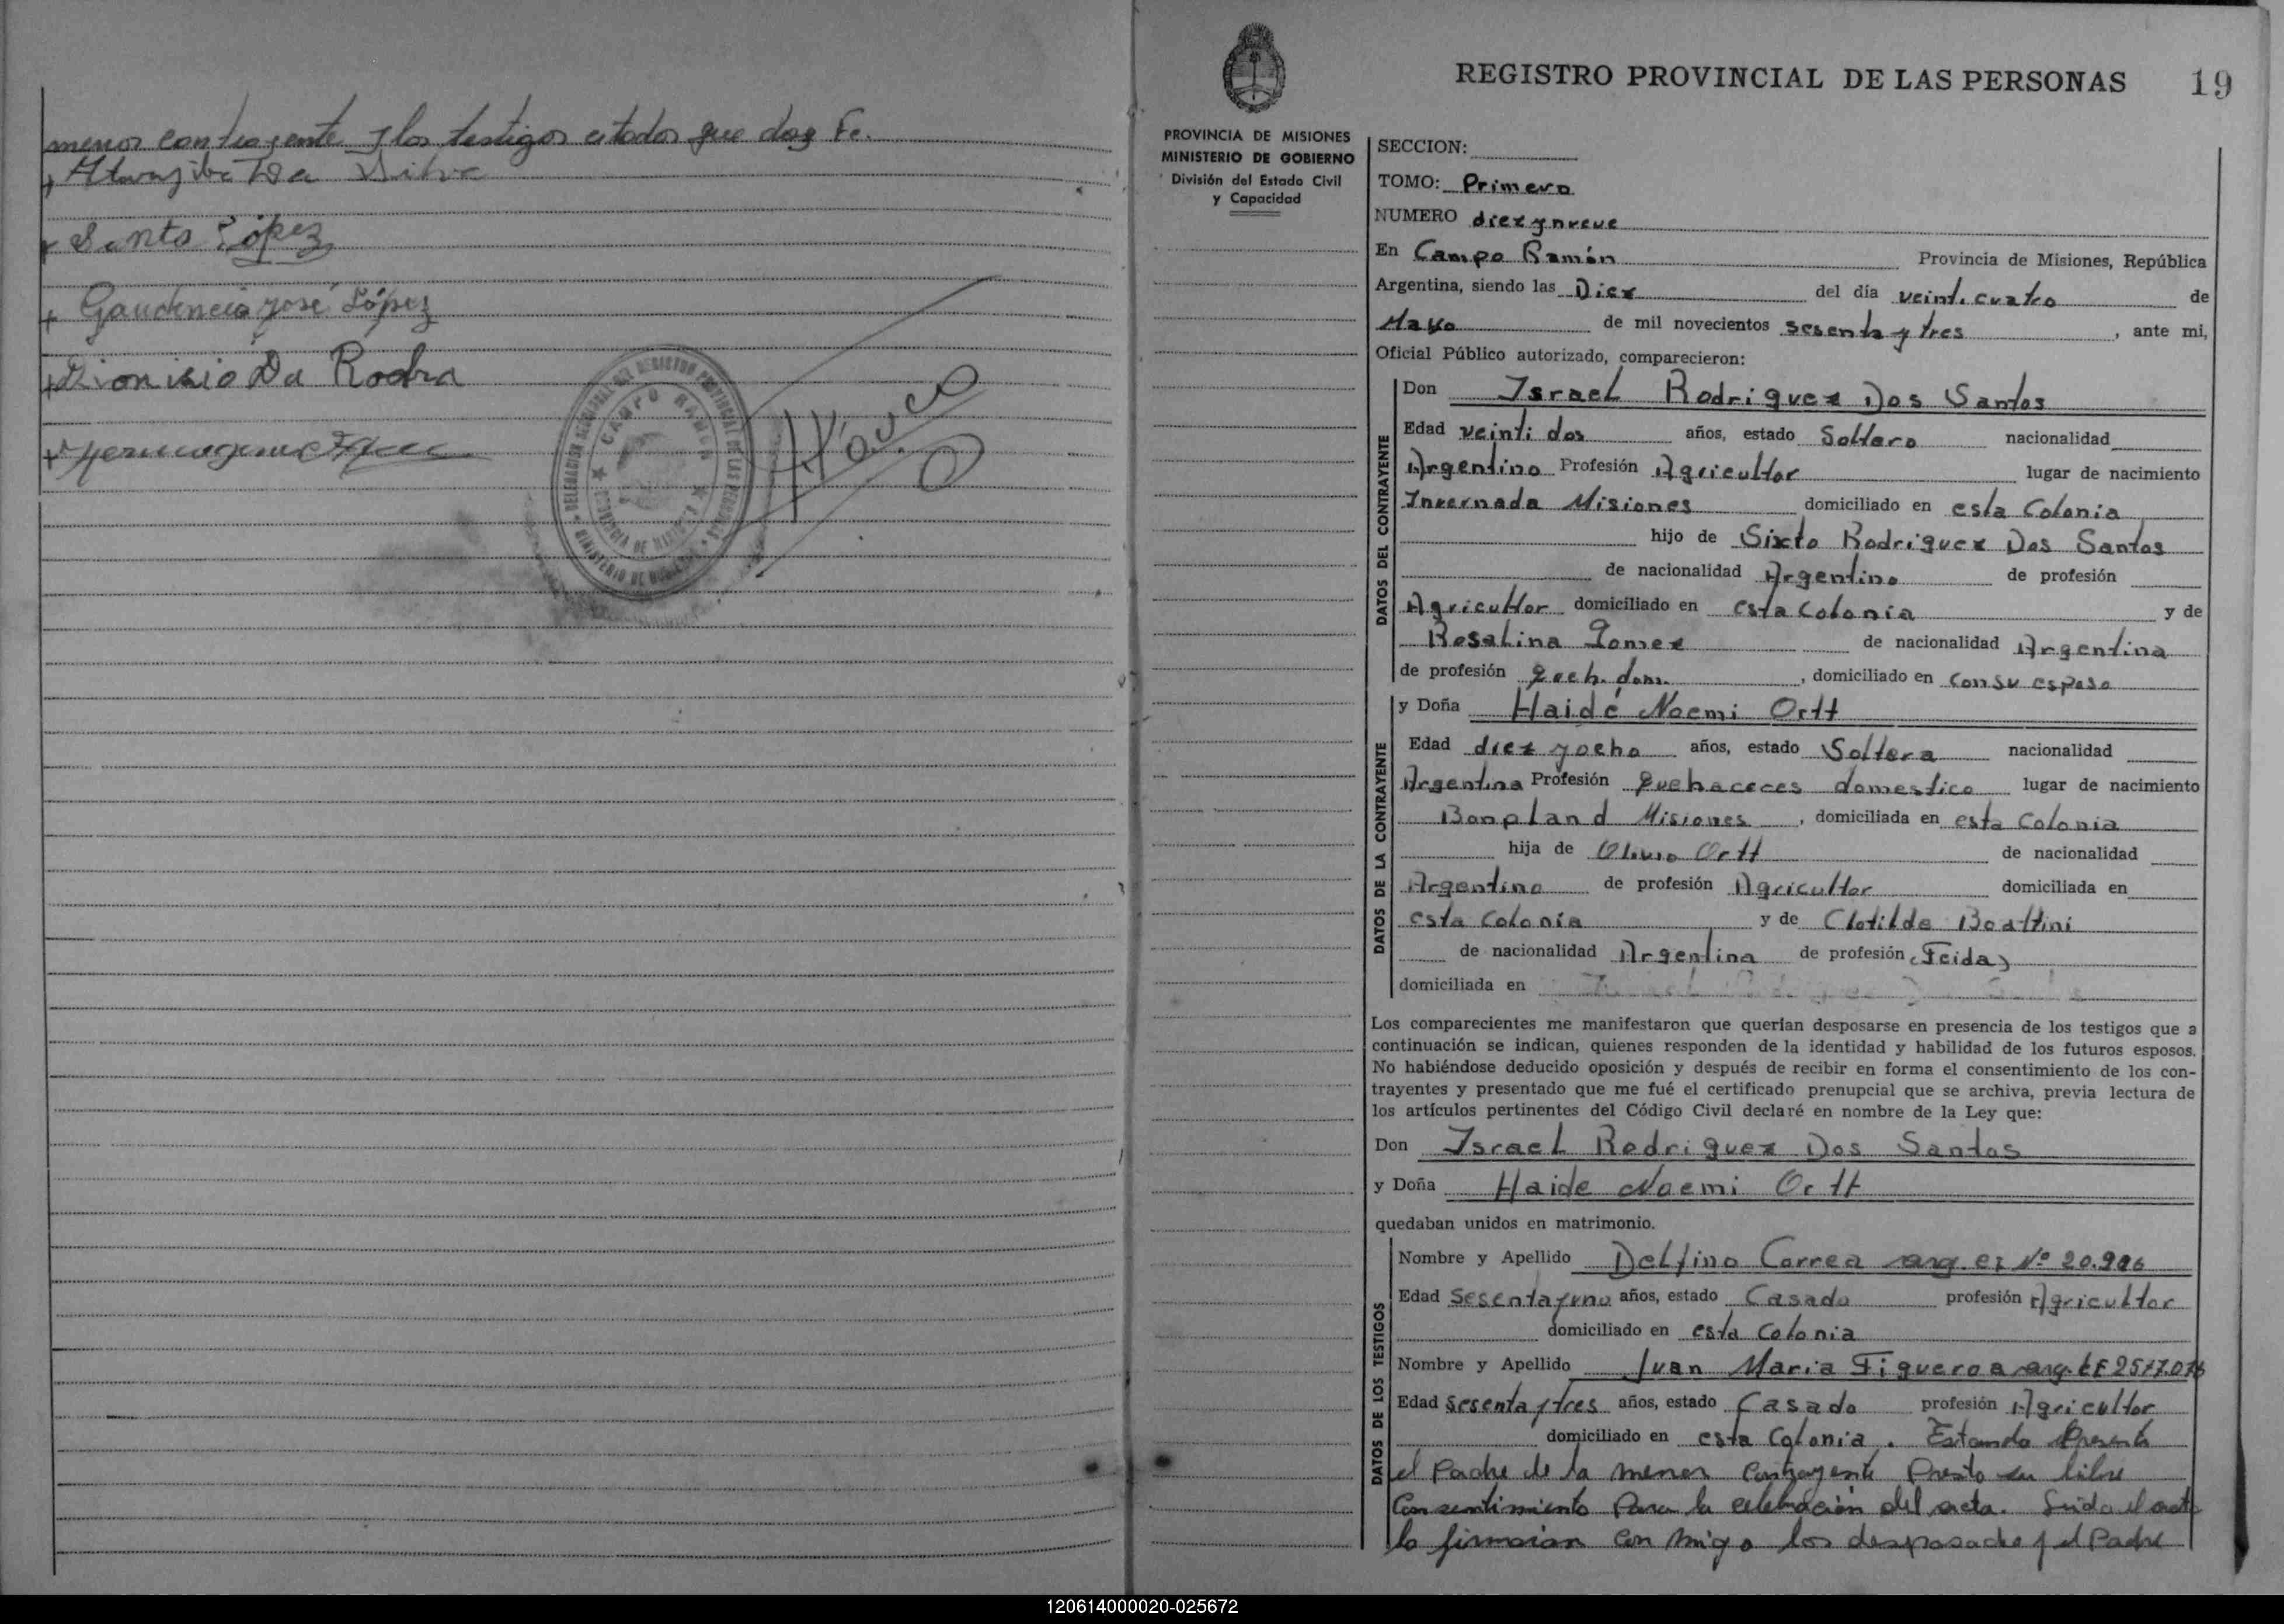 menor contrayente y los testigos citados que doy Fe.
Da Silva
Santo López
Gaudencio José López
Dionisio Da Rocha
DELEGACION SECCIONAL DEL REGISTRO PROVINCIAL DE LAS PERSONAS
CAMPO RAMON
PROVINCIA DE MISIONES
MINISTERIO DE GOBIERNO
REGISTRO PROVINCIAL DE LAS PERSONAS 19
PROVINCIA DE MISIONES
MINISTERIO DE GOBIERNO
División del Estado Civil
y Capacidad
SECCION:
TOMO: Primero
NUMERO diez y nueve
En Campo Ramón Provincia de Misiones, República
Argentina, siendo las Diez del día veinticuatro de
Mayo de mil novecientos sesenta y tres, ante mi,
Oficial Público autorizado, comparecieron:
DATOS DEL CONTRAYENTE
Don Israel Rodriguez Dos Santos
Edad veinti dos años, estado Soltero nacionalidad
Argentino Profesión Agricultor lugar de nacimiento
Invernada Misiones domiciliado en esta Colonia
hijo de Sixto Rodriguez Dos Santos
de nacionalidad Argentino de profesión
Agricultor domiciliado en esta Colonia y de
Rosalina Gomez de nacionalidad Argentina
de profesión Queh. dom. , domiciliado en con su esposo
DATOS DE LA CONTRAYENTE
y Doña Haidé Noemi Ortt
Edad diez y ocho años, estado Soltera nacionalidad
Argentina Profesión Quehaceres domestico lugar de nacimiento
Bonpland Misiones , domiciliada en esta Colonia
hija de Olivio Ortt de nacionalidad
Argentino de profesión Agricultor domiciliada en
esta Colonia y de Clotilde Boattini
de nacionalidad Argentina de profesión (Fcida)
domiciliada en
Los comparecientes me manifestaron que querían desposarse en presencia de los testigos que a
continuación se indican, quienes responden de la identidad y habilidad de los futuros esposos.
No habiéndose deducido oposición y después de recibir en forma el consentimiento de los con-
trayentes y presentado que me fué el certificado prenupcial que se archiva, previa lectura de
los artículos pertinentes del Código Civil declaré en nombre de la Ley que:
Don Israel Rodriguez Dos Santos
y Doña Haide Noemi Ortt
quedaban unidos en matrimonio.
DATOS DE LOS TESTIGOS
Nombre y Apellido Delfino Correa arg. Nº 20.926
Edad Sesenta y uno años, estado Casado profesión Agricultor
domiciliado en esta Colonia
Nombre y Apellido Juan Maria Figueroa arg.
Edad Sesenta y tres años, estado Casado profesión Agricultor
domiciliado en esta Colonia. Estando Presente
el Padre de la menor Contrayente Presto su libre
Consentimiento Para la celebración del acta. Leida el acta
la firmaron con migo los desposados y el Padre
120614000020-025672